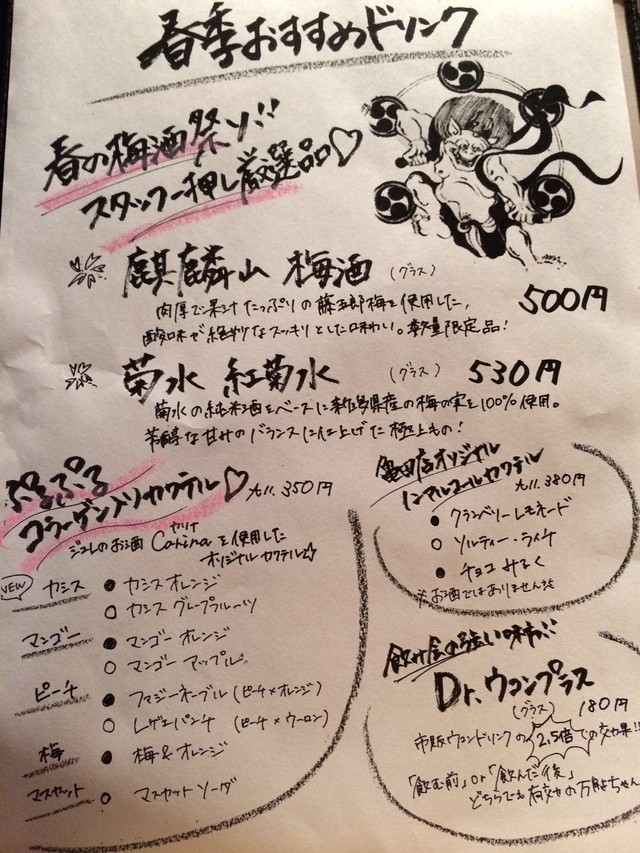 春季おすすめドリンク
春の梅酒祭り!!
スタッフ一押し厳選品♡
麒麟山 梅酒 (グラス) 500円
肉厚で果汁たっぷりの藤五郎梅を使用した、
酸味が絶妙なスッキリとした味わい。数量限定品!
菊水 紅菊水 (グラス) 530円
菊水の純米酒をベースに新潟県産の梅の実を100%使用。
芳醇な甘みのバランスに仕上げた極上もの!
ぷるぷる
コラーゲン入りカクテル♡ ALL.350円
ジュレのお酒 Carina カリナ を使用した
オリジナルカクテル☆
NEW
カシス ● カシスオレンジ
○ カシスグレープフルーツ
マンゴー ● マンゴーオレンジ
○ マンゴーアップル
ピーチ ● ファジーネーブル (ピーチ×オレンジ)
○ レゲエパンチ (ピーチ×ウーロン)
梅 ● 梅&オレンジ
マスカット ○ マスカットソーダ
亀田店オリジナル
ノンアルコールカクテル
ALL.380円
● クランベリーレモネード
○ ソルティーライチ
● チョコみるく
※お酒ではありません
飲み会の強い味方!!
Dr.ウコンプラス
(グラス) 180円
市販ウコンドリンクの2.5倍での効果!!
「飲む前」or「飲んだ後」
どちらでも有効の万能ちゃん